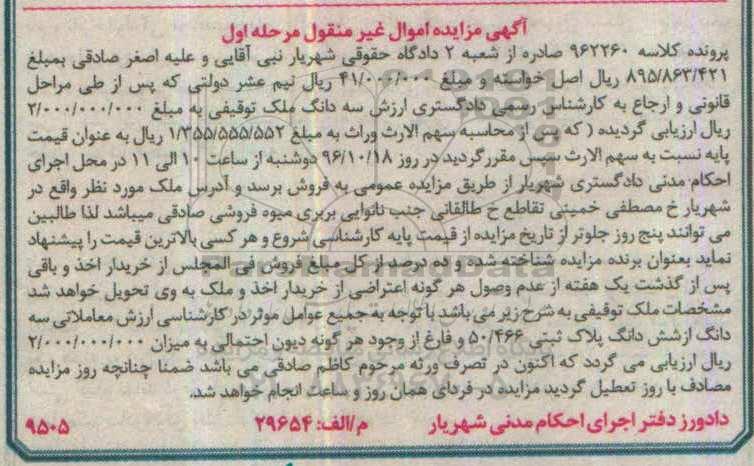 آگهی مزایده اموال غیر منقول مرحله اول
پرونده کلاسه ۹۶۲۲۶۰ صادره از شعبه ۲ دادگاه حقوقی شهریار نبی آقایی و علیه اصغر صادقی بمبلغ
۸۹۵/۸۶۳/۴۲۱ ریال اصل خواسته و مبلغ ۴۱/۰۰۰/۰۰۰ ریال نیم عشر دولتی که پس از طی مراحل
قانونی و ارجاع به کارشناس رسمی دادگستری ارزش سه دانگ ملک توقیفی به مبلغ ۲/۰۰۰/۰۰۰/۰۰۰
ریال ارزیابی گردیده ( که پس از محاسبه سهم الارث وراث به مبلغ ۱/۳۵۵/۵۵۵/۵۵۲ ریال به عنوان قیمت
پایه نسبت به سهم الارث سپس مقرر گردید در روز ۹۶/۱۰/۱۸ دوشنبه از ساعت ۱۰ الی ۱۱ در محل اجرای
احکام مدنی دادگستری شهریار از طریق مزایده عمومی به فروش برسد و آدرس ملک مورد نظر واقع در
شهریار خ مصطفی خمینی تقاطع خ طالقانی جنب نانوایی بربری میوه فروشی صادقی میباشد لذا طالبین
می توانند پنج روز جلوتر از تاریخ مزایده از قیمت پایه کارشناسی شروع و هر کسی بالاترین قیمت را پیشنهاد
نماید بعنوان برنده مزایده شناخته شده و ده درصد از کل مبلغ فروش فی المجلس از خریدار اخذ و باقی
پس از گذشت یک هفته از عدم وصول هر گونه اعتراضی از خریدار اخذ و ملک به وی تحویل خواهد شد
مشخصات ملک توقیفی به شرح زیر می باشد با توجه به جمیع عوامل موثر در کارشناسی ارزش معاملاتی سه
دانگ از شش دانگ پلاک ثبتی ۵۰/۴۶۶ و فارغ از وجود هر گونه دیون احتمالی به میزان ۲/۰۰۰/۰۰۰/۰۰۰
ریال ارزیابی می گردد که اکنون در تصرف ورثه مرحوم کاظم صادقی می باشد ضمنا چنانچه روز مزایده
مصادف با روز تعطیل گردید مزایده در فردای همان روز و ساعت انجام خواهد شد.
دادورز دفتر اجرای احکام مدنی شهریار م/الف: ۲۹۶۵۴ ۹۵۰۵